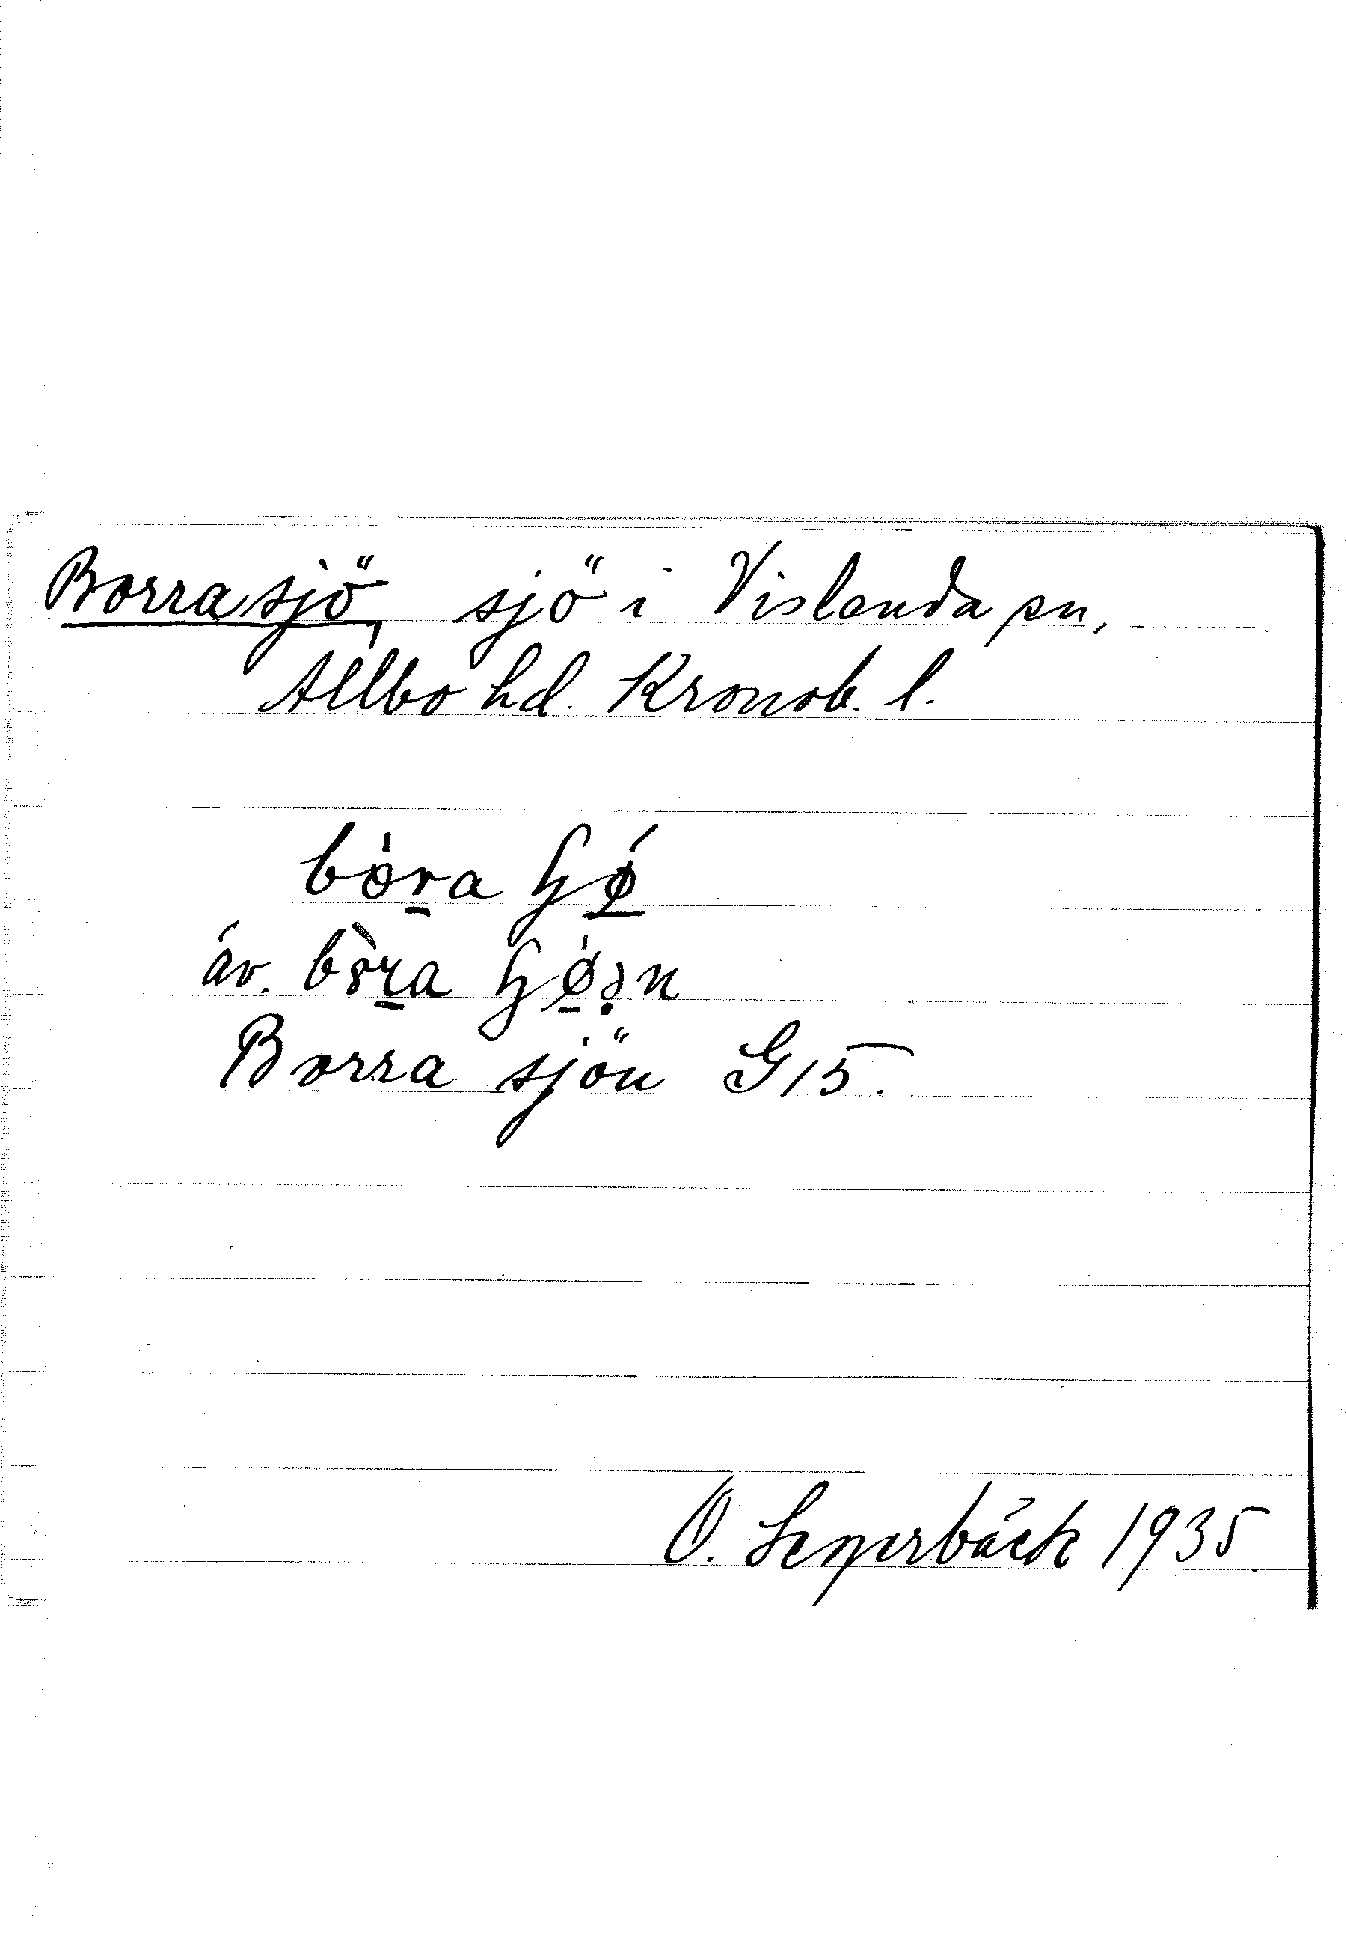 Borrasjö, sjö i Vislanda sn,
Allbo hd. Kronob. l.
bòra ɧǿ
äv. bòra ɧǿən
Borra sjön G15.
O. 1935